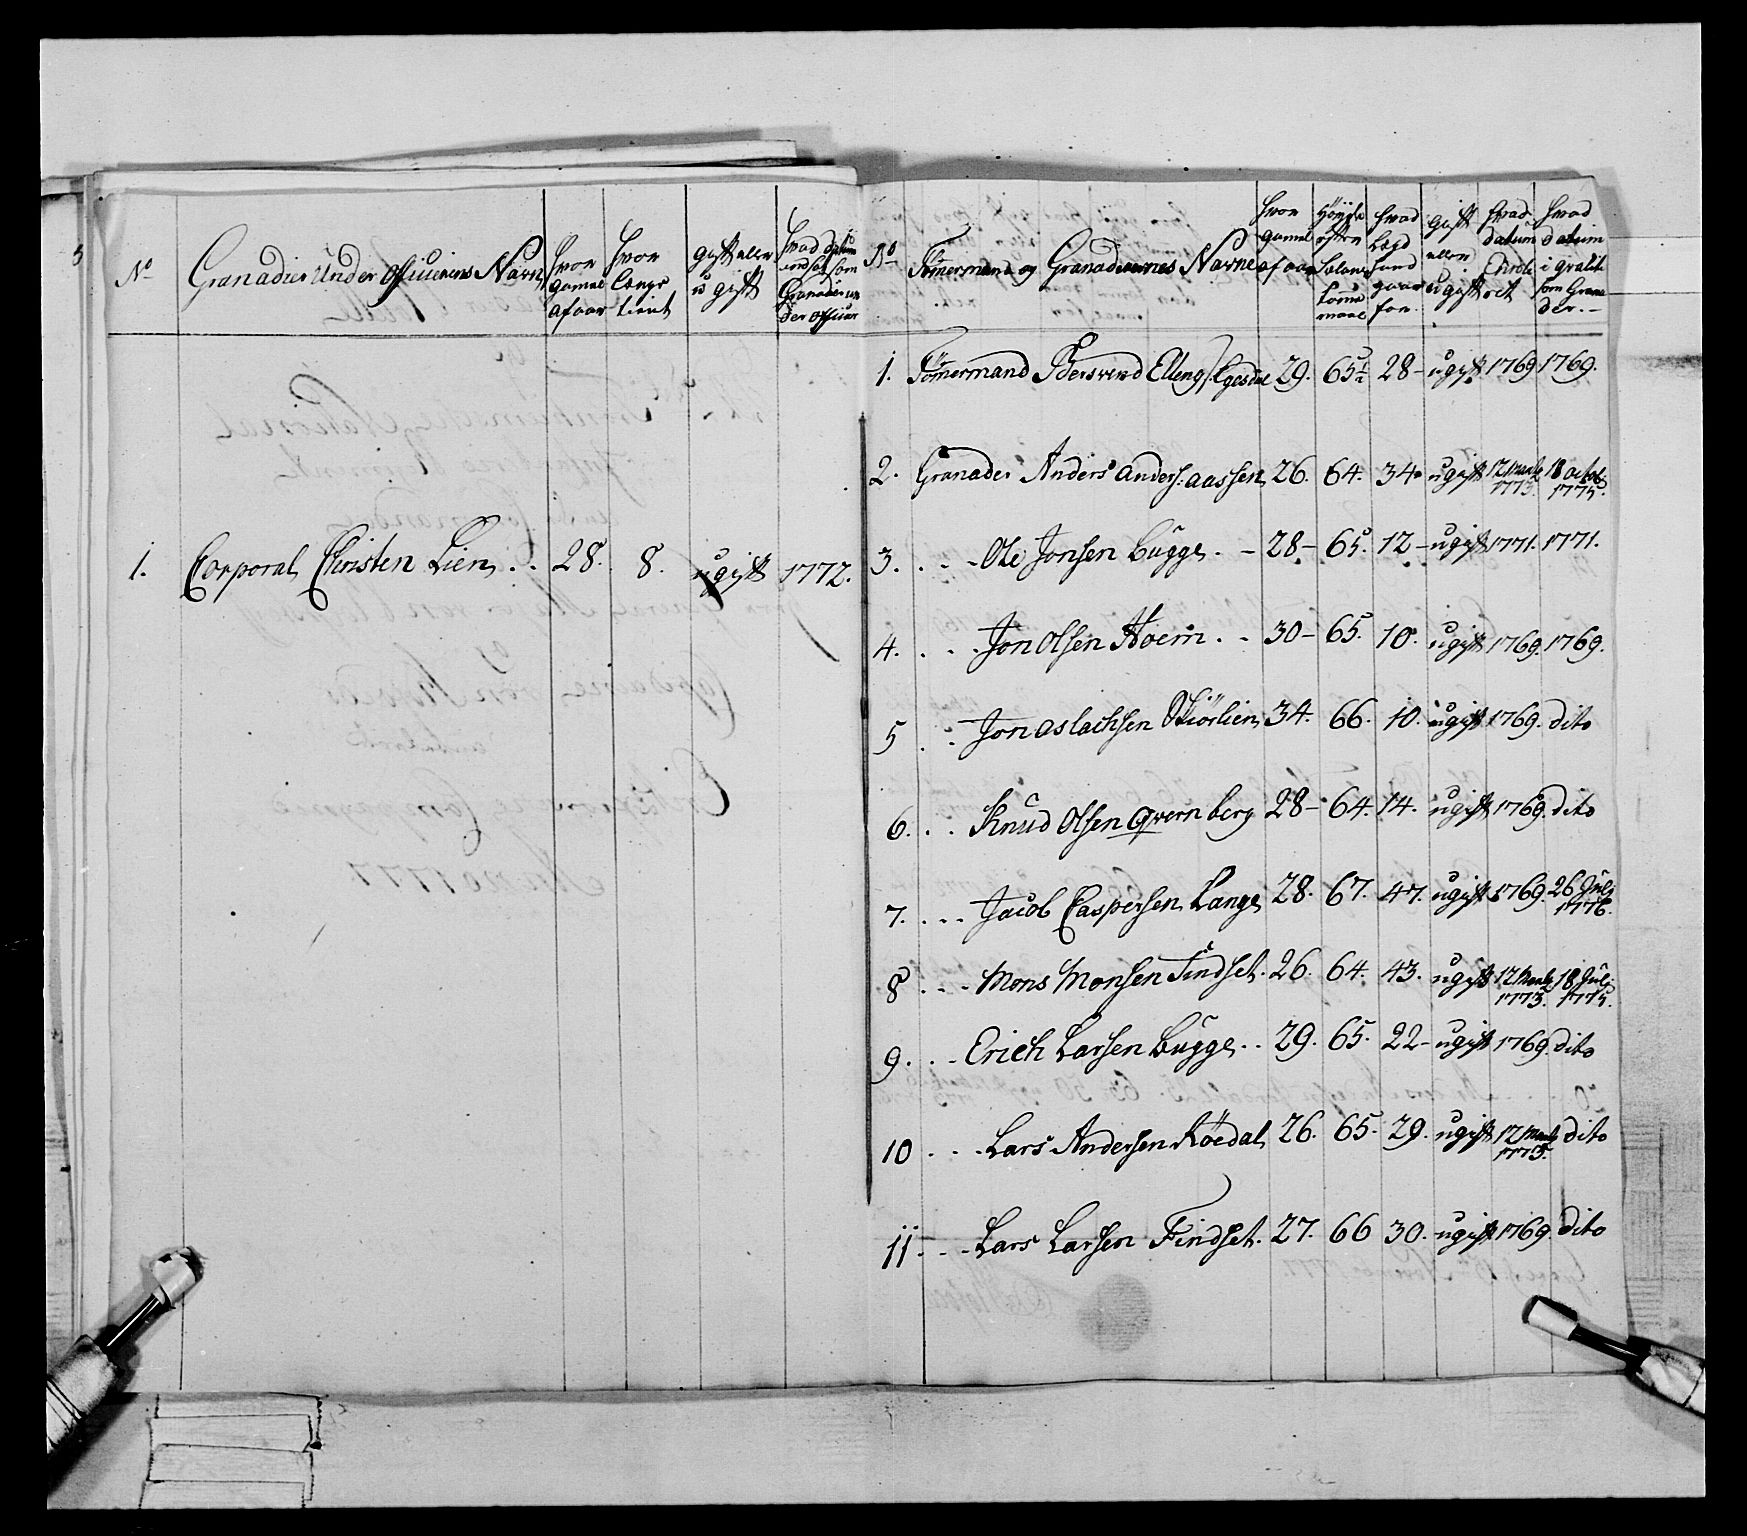 No
Granadier Under Officierens Navn
hvor
gamel
af aar
hvor
lenge
tient
gift eller
u gift
hvad datum
indsat som
Granadier un
der officier
1. Corporal Christen Lien 28. 8. ugift 1772.
No
Tömermand og Granaderernes Navne
hvor
gamel
af aar
Höyde
efter
tomme
maal
hvad
Lægd
hand
gaar
for.
gift
eller
ugift
hvad
datum
Enrole
ret
hvad
datum
som Grana
der.
1. Tömermand Bersvend Elleng 29. 65½ 28 - ugift 1769 1769.
2. Granader Anders Anders: aassen 26. 64. 34. ugift 12 Martz 1773. 18 octob 1775.
3. Ole Jonsen Bugge. - 28 - 65. 12 - ugift 1771. 1771.
4. Jon Olsen Hoem. - 30 - 65. 10. ugift 1769. 1769.
5 Jon aslachsen Skiörlien 34. 66. 10. ugift 1769. dito
6. Knud Olsen qvernberg 28 - 64. 14. ugift 1769. dito
7. Jacob Caspersen Lange 28. 67. 47. ugift 1769. 26 Juli 1776.
8 Mons Monsen Findset. 26. 64. 43. ugift 12 Martz 1773. 18 Juli 1775.
9. Erich Larsen Bugge. 29. 65. 22 - ugift 1769. dito
10 Lars Andersen Röedal 26. 65. 29. ugift 12 Martz 1773. dito
11. Lars Larsen Findset. 27. 66 30. ugift 1769. dito